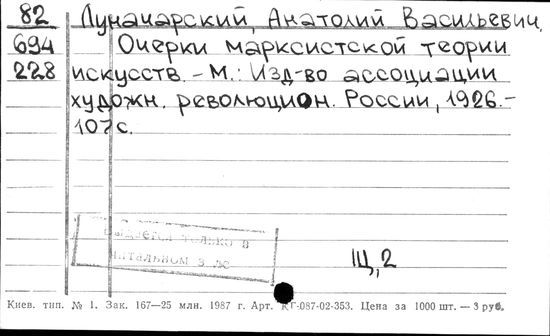 82 Луначарский, Анатолий Васильевич.
694 Очерки марксистской теории
228 искусств. - М.: Изд-во ассоциации
художн. революцион. России, 1926.-
107с.
Выдается только в
читальном зале
Щ,2
Киев. тип. № 1. Зак. 167—25 млн. 1987 г. Арт. КГ-087-02-353. Цена за 1000 шт. — 3 руб.